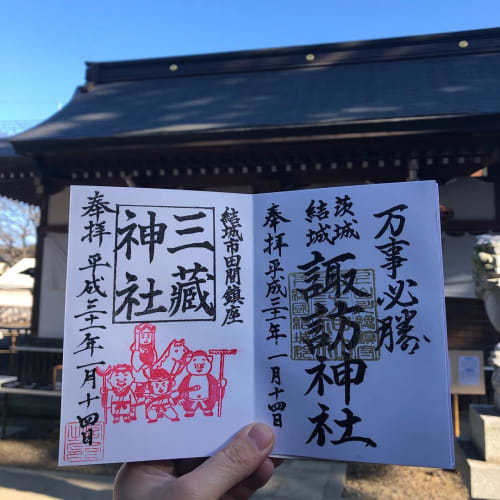 万事必勝
茨城
結城
諏訪神社
奉拝 平成三十一年 一月十四日
結城市田間鎮座
三藏
神社
奉拝 平成三十一年一月十四日